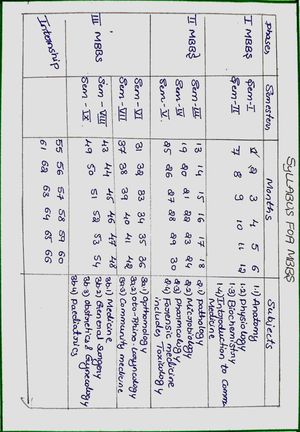 SYLLABUS FOR MBBS
Phases Semesters Months Subjects
I MBBS Sem-I 1 2 3 4 5 6 1.1) Anatomy
1.2) Physiology
Sem-II 7 8 9 10 11 12 1.3) Biochemistry
1.4) Introduction to Comm. Medicine
II MBBS Sem-III 13 14 15 16 17 18 2.1) Pathology
Sem-IV 19 20 21 22 23 24 2.2) Microbiology
2.3) Pharmocology
Sem-V 25 26 27 28 29 30 2.4) Forensic medicine
includes Toxicology
III MBBS Sem-VI 31 32 33 34 35 36 3a1) Opthomology
3a2) Oto-Rhino-Laryncology
Sem-VII 37 38 39 40 41 42 3a3) Community medicine
Sem-VIII 43 44 45 46 47 48 3b1) Medicine
3b2) General Surgery
Sem-IX 49 50 51 52 53 54 3b3) Obstetrics & Gynecology
3b4) Paediatrics
Internship 55 56 57 58 59 60
61 62 63 64 65 66